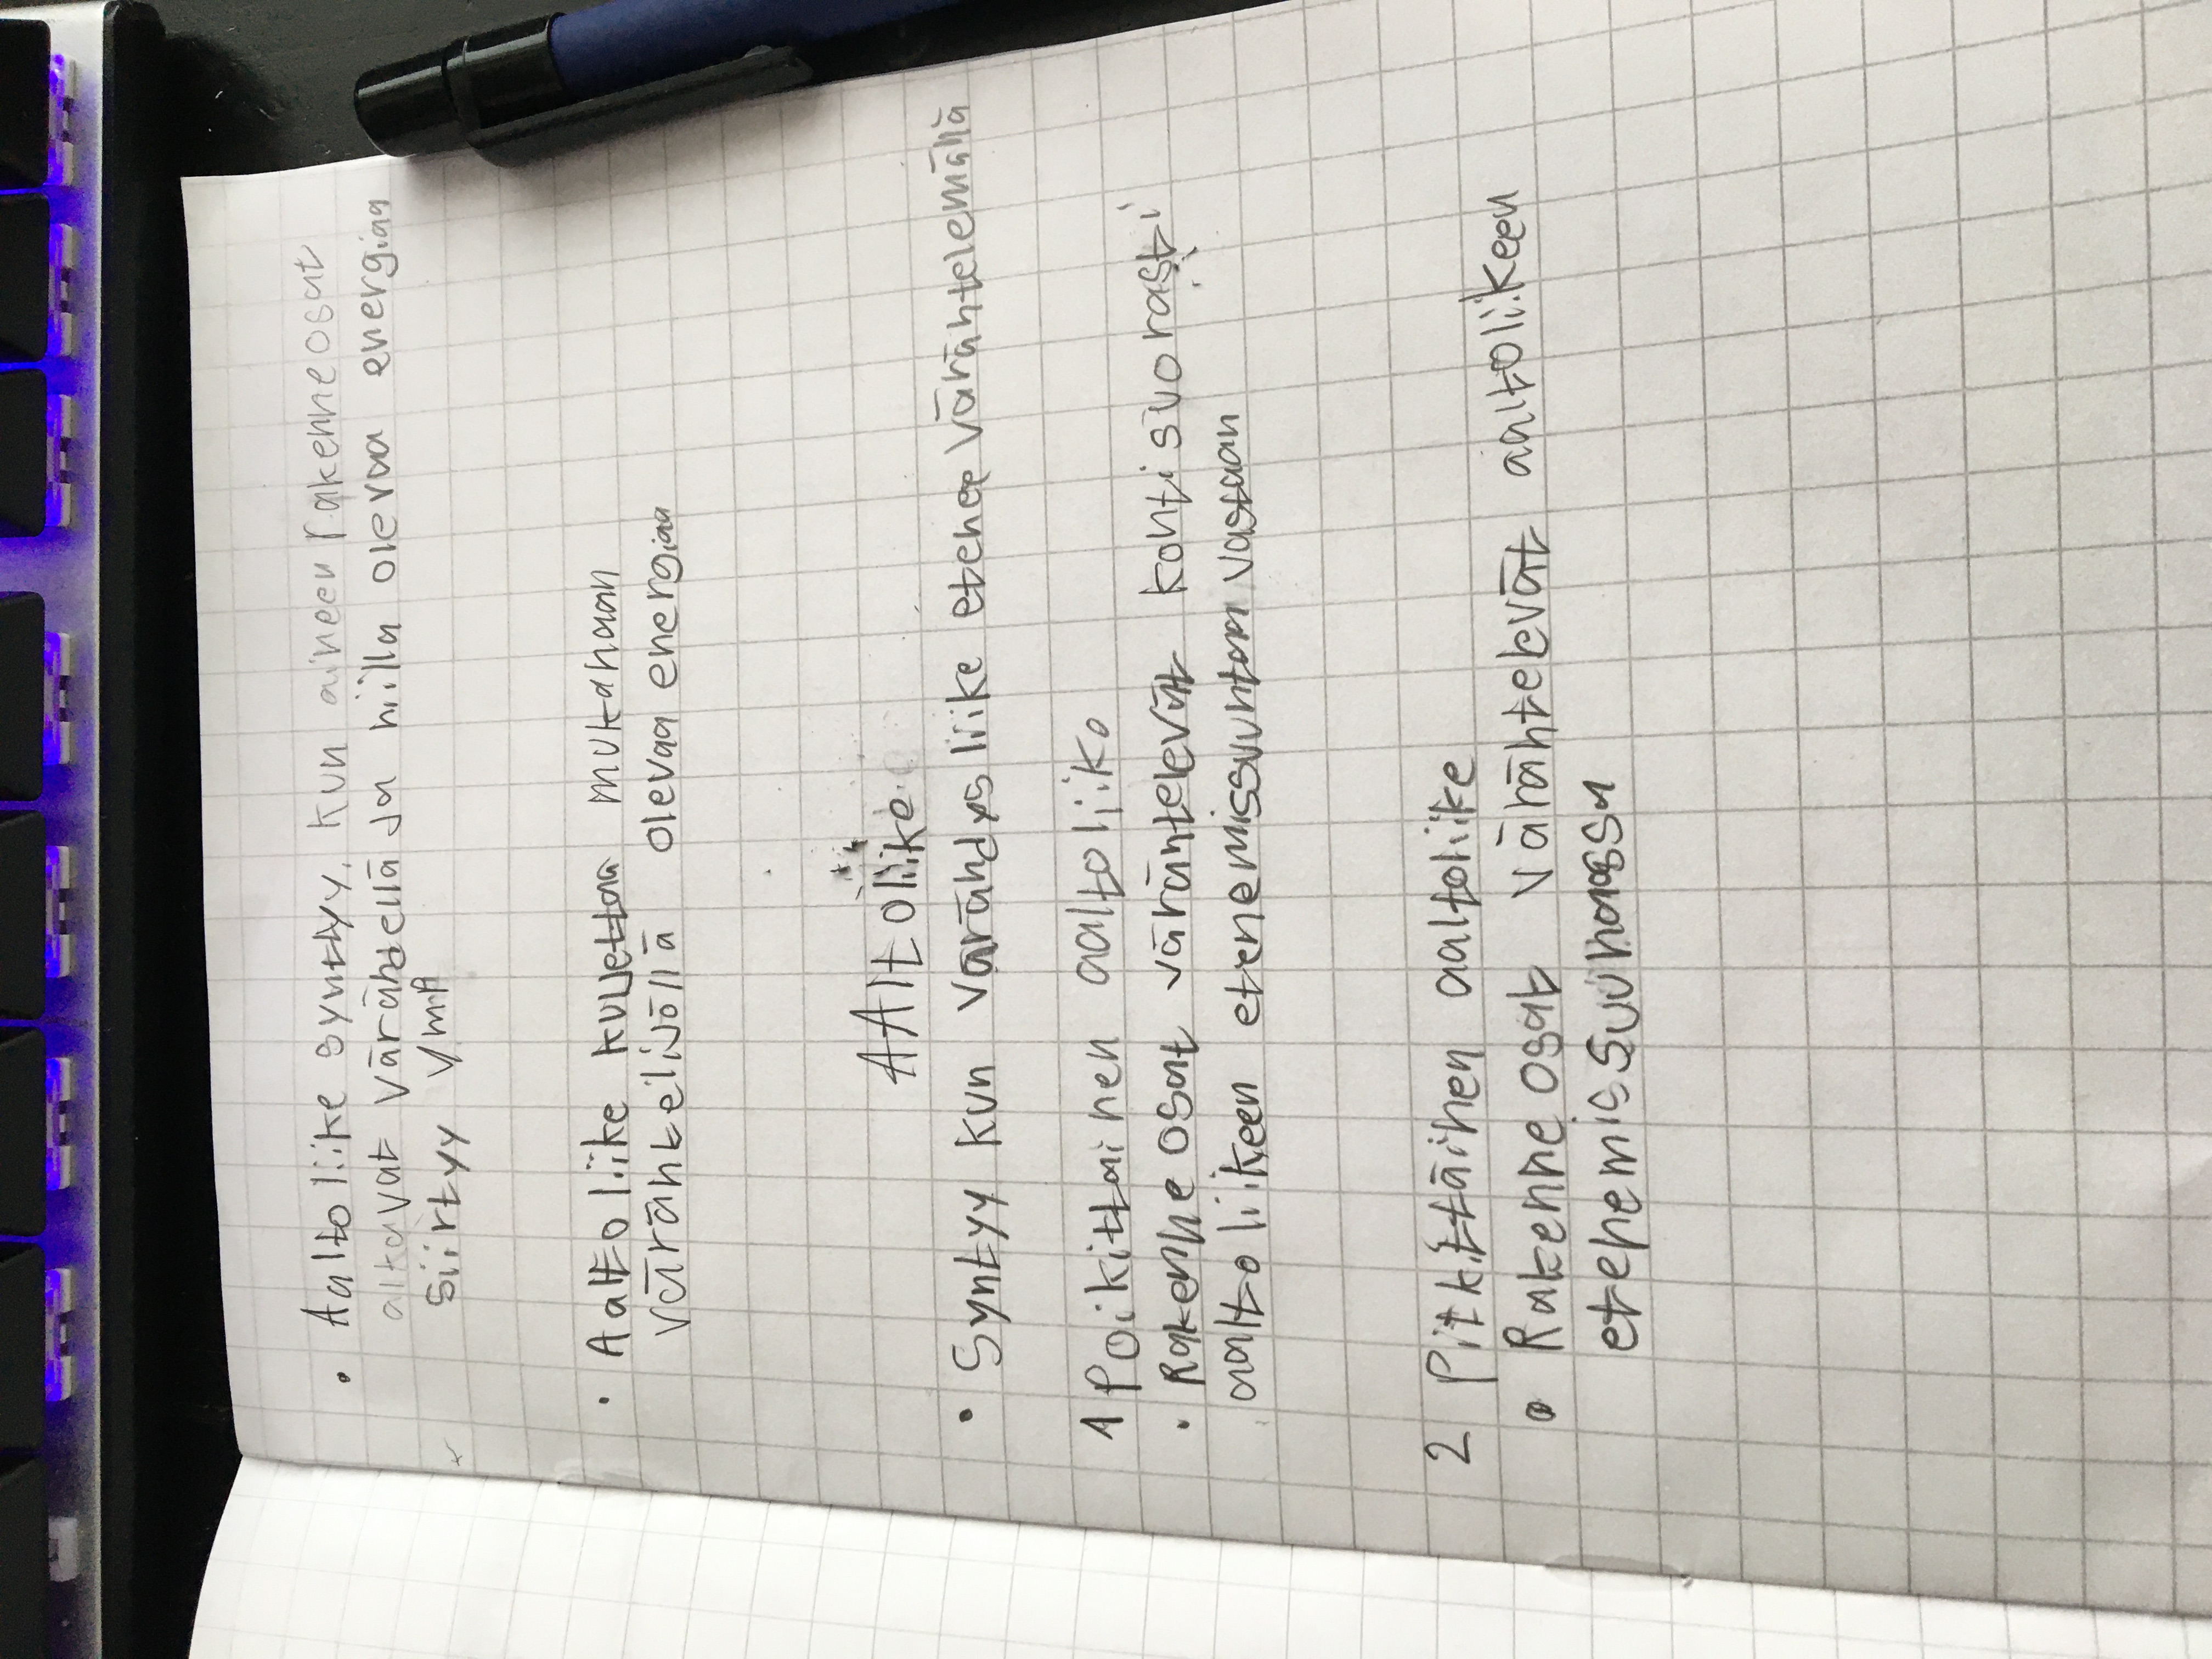 • Aaltoliike syntyy, kun aineen rakenneosat
alkavat värähdellä ja niillä olevaa energiaa
siirtyy ymp
• Aaltoliike kuljettaa mukanaan
värähtelijöllä olevaa energiaa
AAltoliike
• Syntyy kun värähdysliike etenee värähtelemällä
1 Poikittainen aaltoliike
• Rakenneosat värähtelevät kohtisuorasti
aaltoliikeen etenemissuuntaa vastaan
2 Pitkittäinen aaltoliike
• Rakenneosat värähtelevät aaltoliikeen
etenemissuunassa